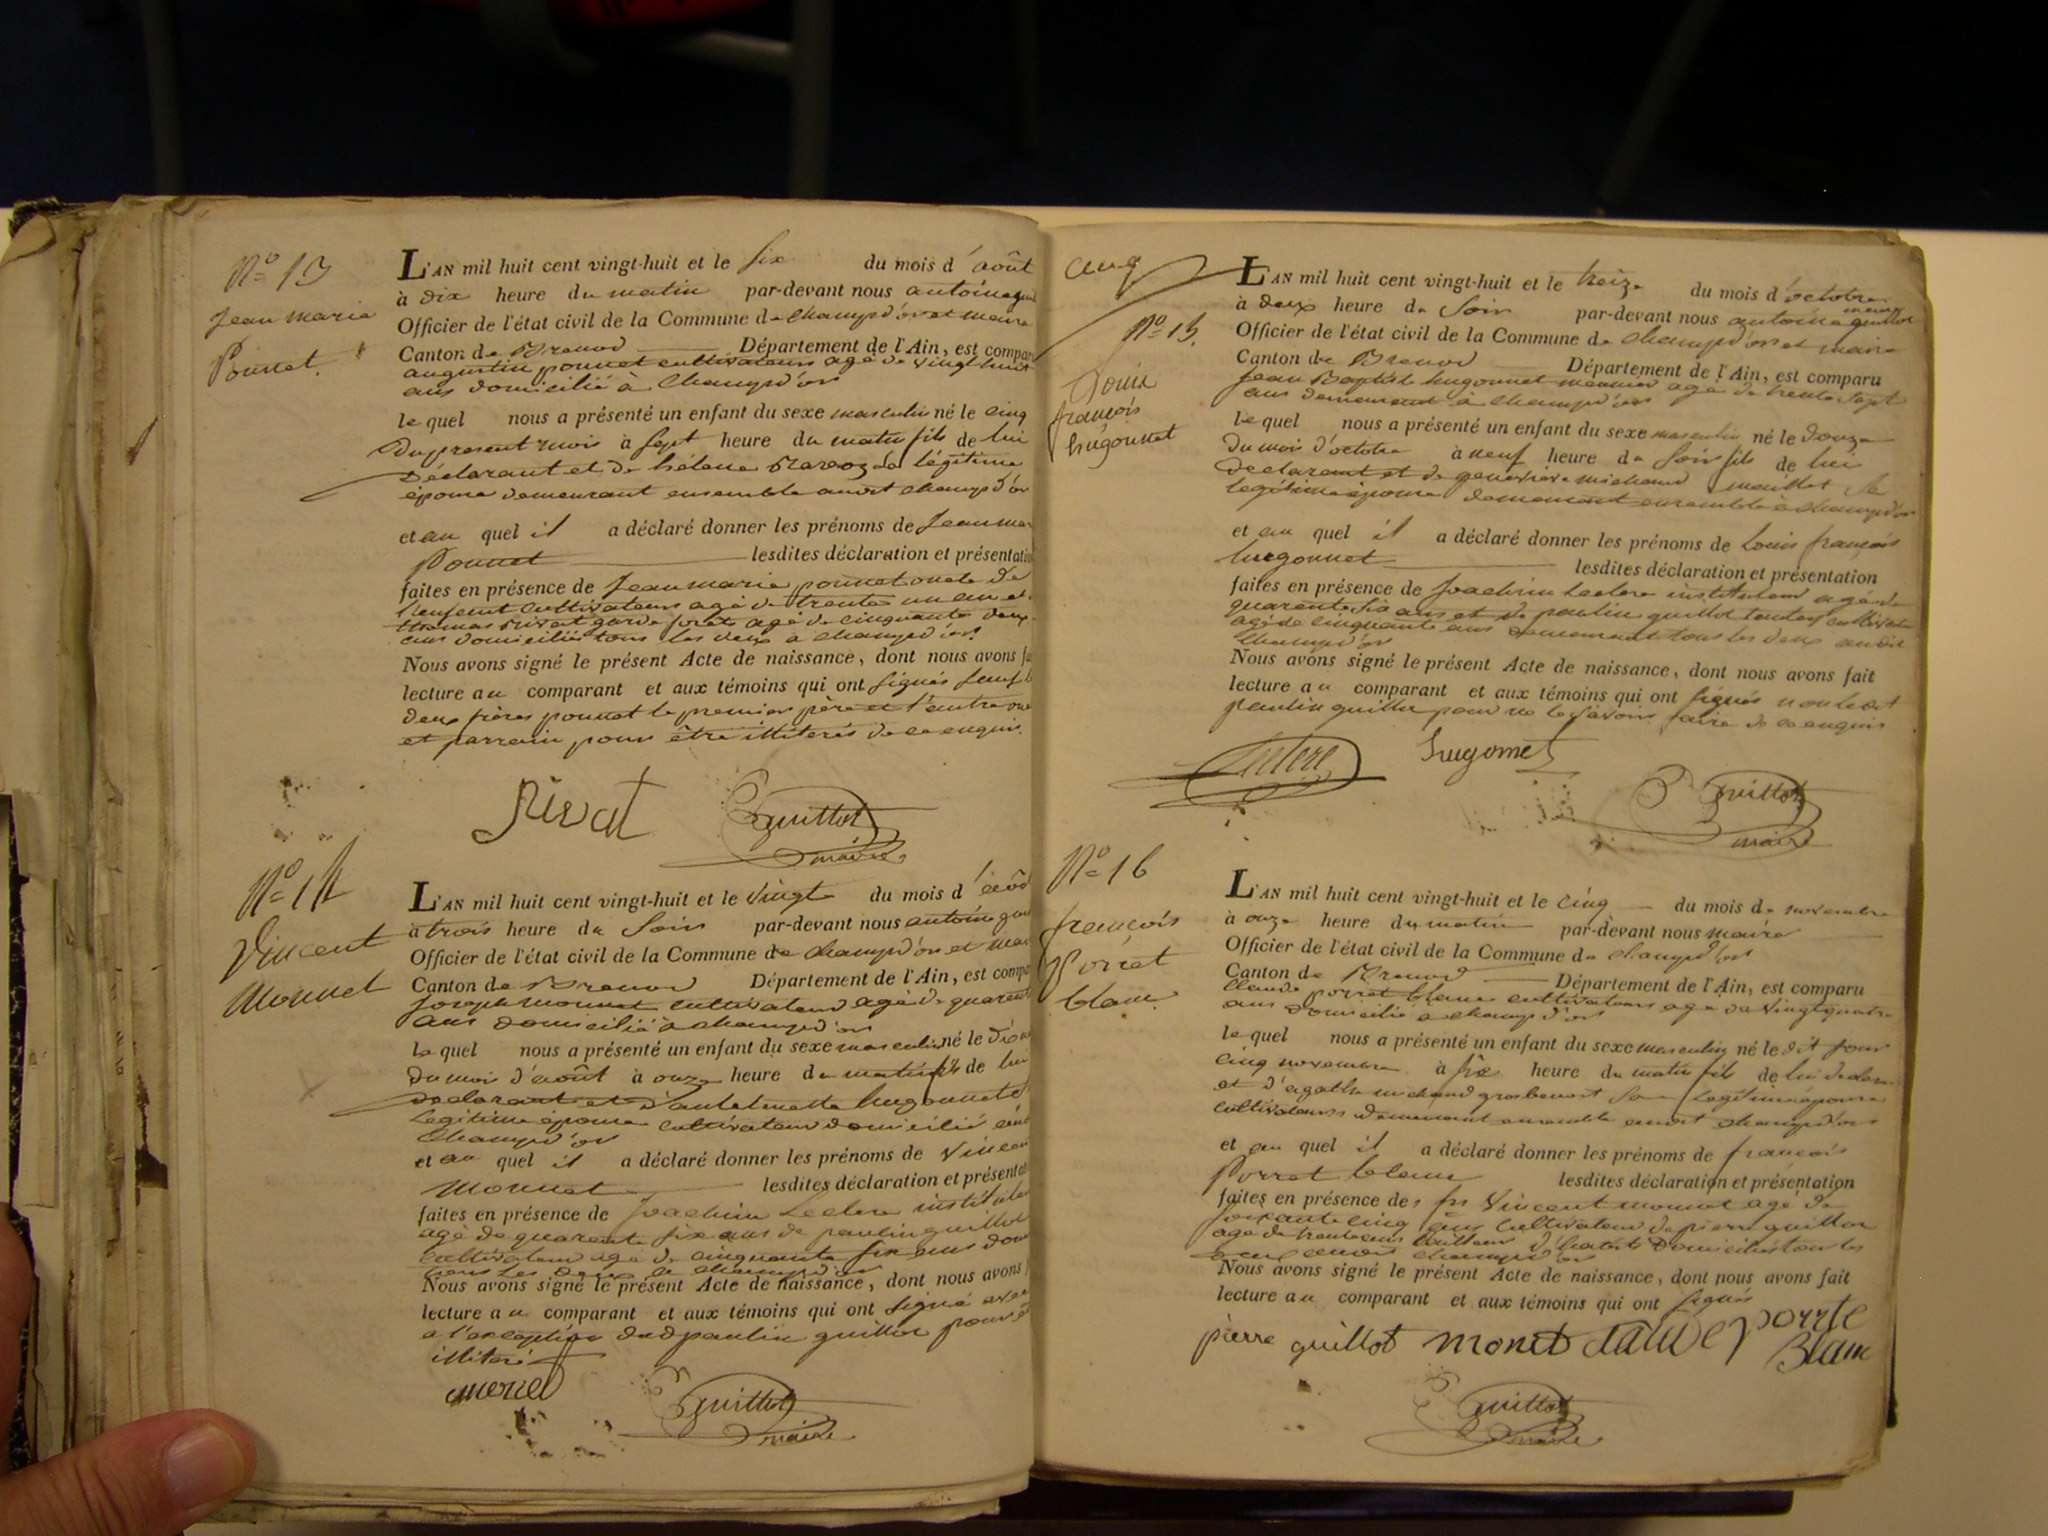 N° 13
Jean marie
Ponnet.
L'AN mil huit cent vingt-huit et le six du mois d'août
à dix heure du matin par-devant nous antoine
Officier de l'état civil de la Commune de champd'or et maire
Canton de Brenod Département de l'Ain, est compar
augustin ponnet cultivateur agé de vingt huit
ans domicilié à Champd'or
lequel nous a présenté un enfant du sexe masculin né le cinq
du present mois à sept heure du matin fils de lui
Déclarant et de hélene sa légitime
épouse demeurant ensemble audit champd'or
et au quel il a déclaré donner les prénoms de Jean mar
Ponnet lesdites déclaration et présentati
faites en présence de Jean marie ponnet oncle de
l'enfant cultivateur agé de trente un an et
thomas Rivat garde foret agé de cinquante deux
ans domiciliés tous les deux a champd'or.
Nous avons signé le présent Acte de naissance, dont nous avons fa
lecture au comparant et aux témoins qui ont signés sauf l
deux frères ponnet le premier père et l'autre on
et parrain pour être illiterés de ce enquis.
Rivat Guillot
maire
N° 14
Vincent
Monnet
L'AN mil huit cent vingt-huit et le vingt du mois d'aoû
à trois heure du soir par-devant nous antoine
Officier de l'état civil de la Commune de champd'or et mai
Canton de Brenod Département de l'Ain, est compa
Joseph monnet cultivateur agé de quarent
ans domicilié à champd'or
le quel nous a présenté un enfant du sexe masculin né le
du mois d'août à onze heure du matin fils de lui
declarant et d'antelmette hugonnet
Legitime épouse cultivateur domicilié
Champd'or
et au quel il a déclaré donner les prénoms de Vincen
Monnet lesdites déclaration et présentat
faites en présence de Joachim Leclerc institute
agé de quarente six ans de paulin guillot
cultivateur agé de cinquante six ans dom
tous les deux a champd'or
Nous avons signé le présent Acte de naissance, dont nous avons
lecture au comparant et aux témoins qui ont signé avec
a l'exception dud paulin guillot pour
illiteré
Guillot
maire
cinq
N° 15.
Louis
françois
hugonnet
L'AN mil huit cent vingt-huit et le treize du mois d'octobre
à deux heure du soir par-devant nous antoine guillot
Officier de l'état civil de la Commune de champd'or et maire
Canton de Brenod Département de l'Ain, est comparu
Jean Baptiste hugonnet meunier agé de trente sept
ans demeurant à champd'or
le quel nous a présenté un enfant du sexe masculin né le douze
du mois d'octobre à neuf heure du soir fils de lui
declarant et de genevieve michaud maillet sa
legitime épouse demeurant ensemble à champd'or
et au quel il a déclaré donner les prénoms de Louis françois
hugonnet lesdites déclaration et présentation
faites en présence de Joachim Leclerc instituteur agé de
quarente six ans et de paulin guillot cultivateur
agé de cinquante ans demeurant tous les deux audit
Champd'or
Nous avons signé le présent Acte de naissance, dont nous avons fait
lecture au comparant et aux témoins qui ont signés non ledit
paulin guillot pour ne le savoir faire de ce enquis
hugonnet
Guillot
maire
N° 16
françois
Porret
blanc
L'AN mil huit cent vingt-huit et le cinq du mois de novembre
à onze heure du matin par-devant nous maire
Officier de l'état civil de la Commune de champd'or
Canton de Brenod Département de l'Ain, est comparu
Claude porret blanc cultivateur agé de vingt quatre
ans domicilié a champd'or
le quel nous a présenté un enfant du sexe masculin né le dit jour
cinq novembre à six heure du matin fils de lui declara
et d'agathe michaud grosbenoit sa Legitime épouse
cultivateurs demeurant ensemble audit champd'or
et au quel il a déclaré donner les prénoms de françois
Porret blanc lesdites déclaration et présentation
faites en présence de Vincent monnet agé de
soixante cinq ans cultivateur de pierre guillot
agé de trente ans tailleur d'habits domiciliés tous les
deux audit champd'or
Nous avons signé le présent Acte de naissance, dont nous avons fait
lecture au comparant et aux témoins qui ont signés
pierre guillot monet claude porrte
Blanc
Guillot
maire